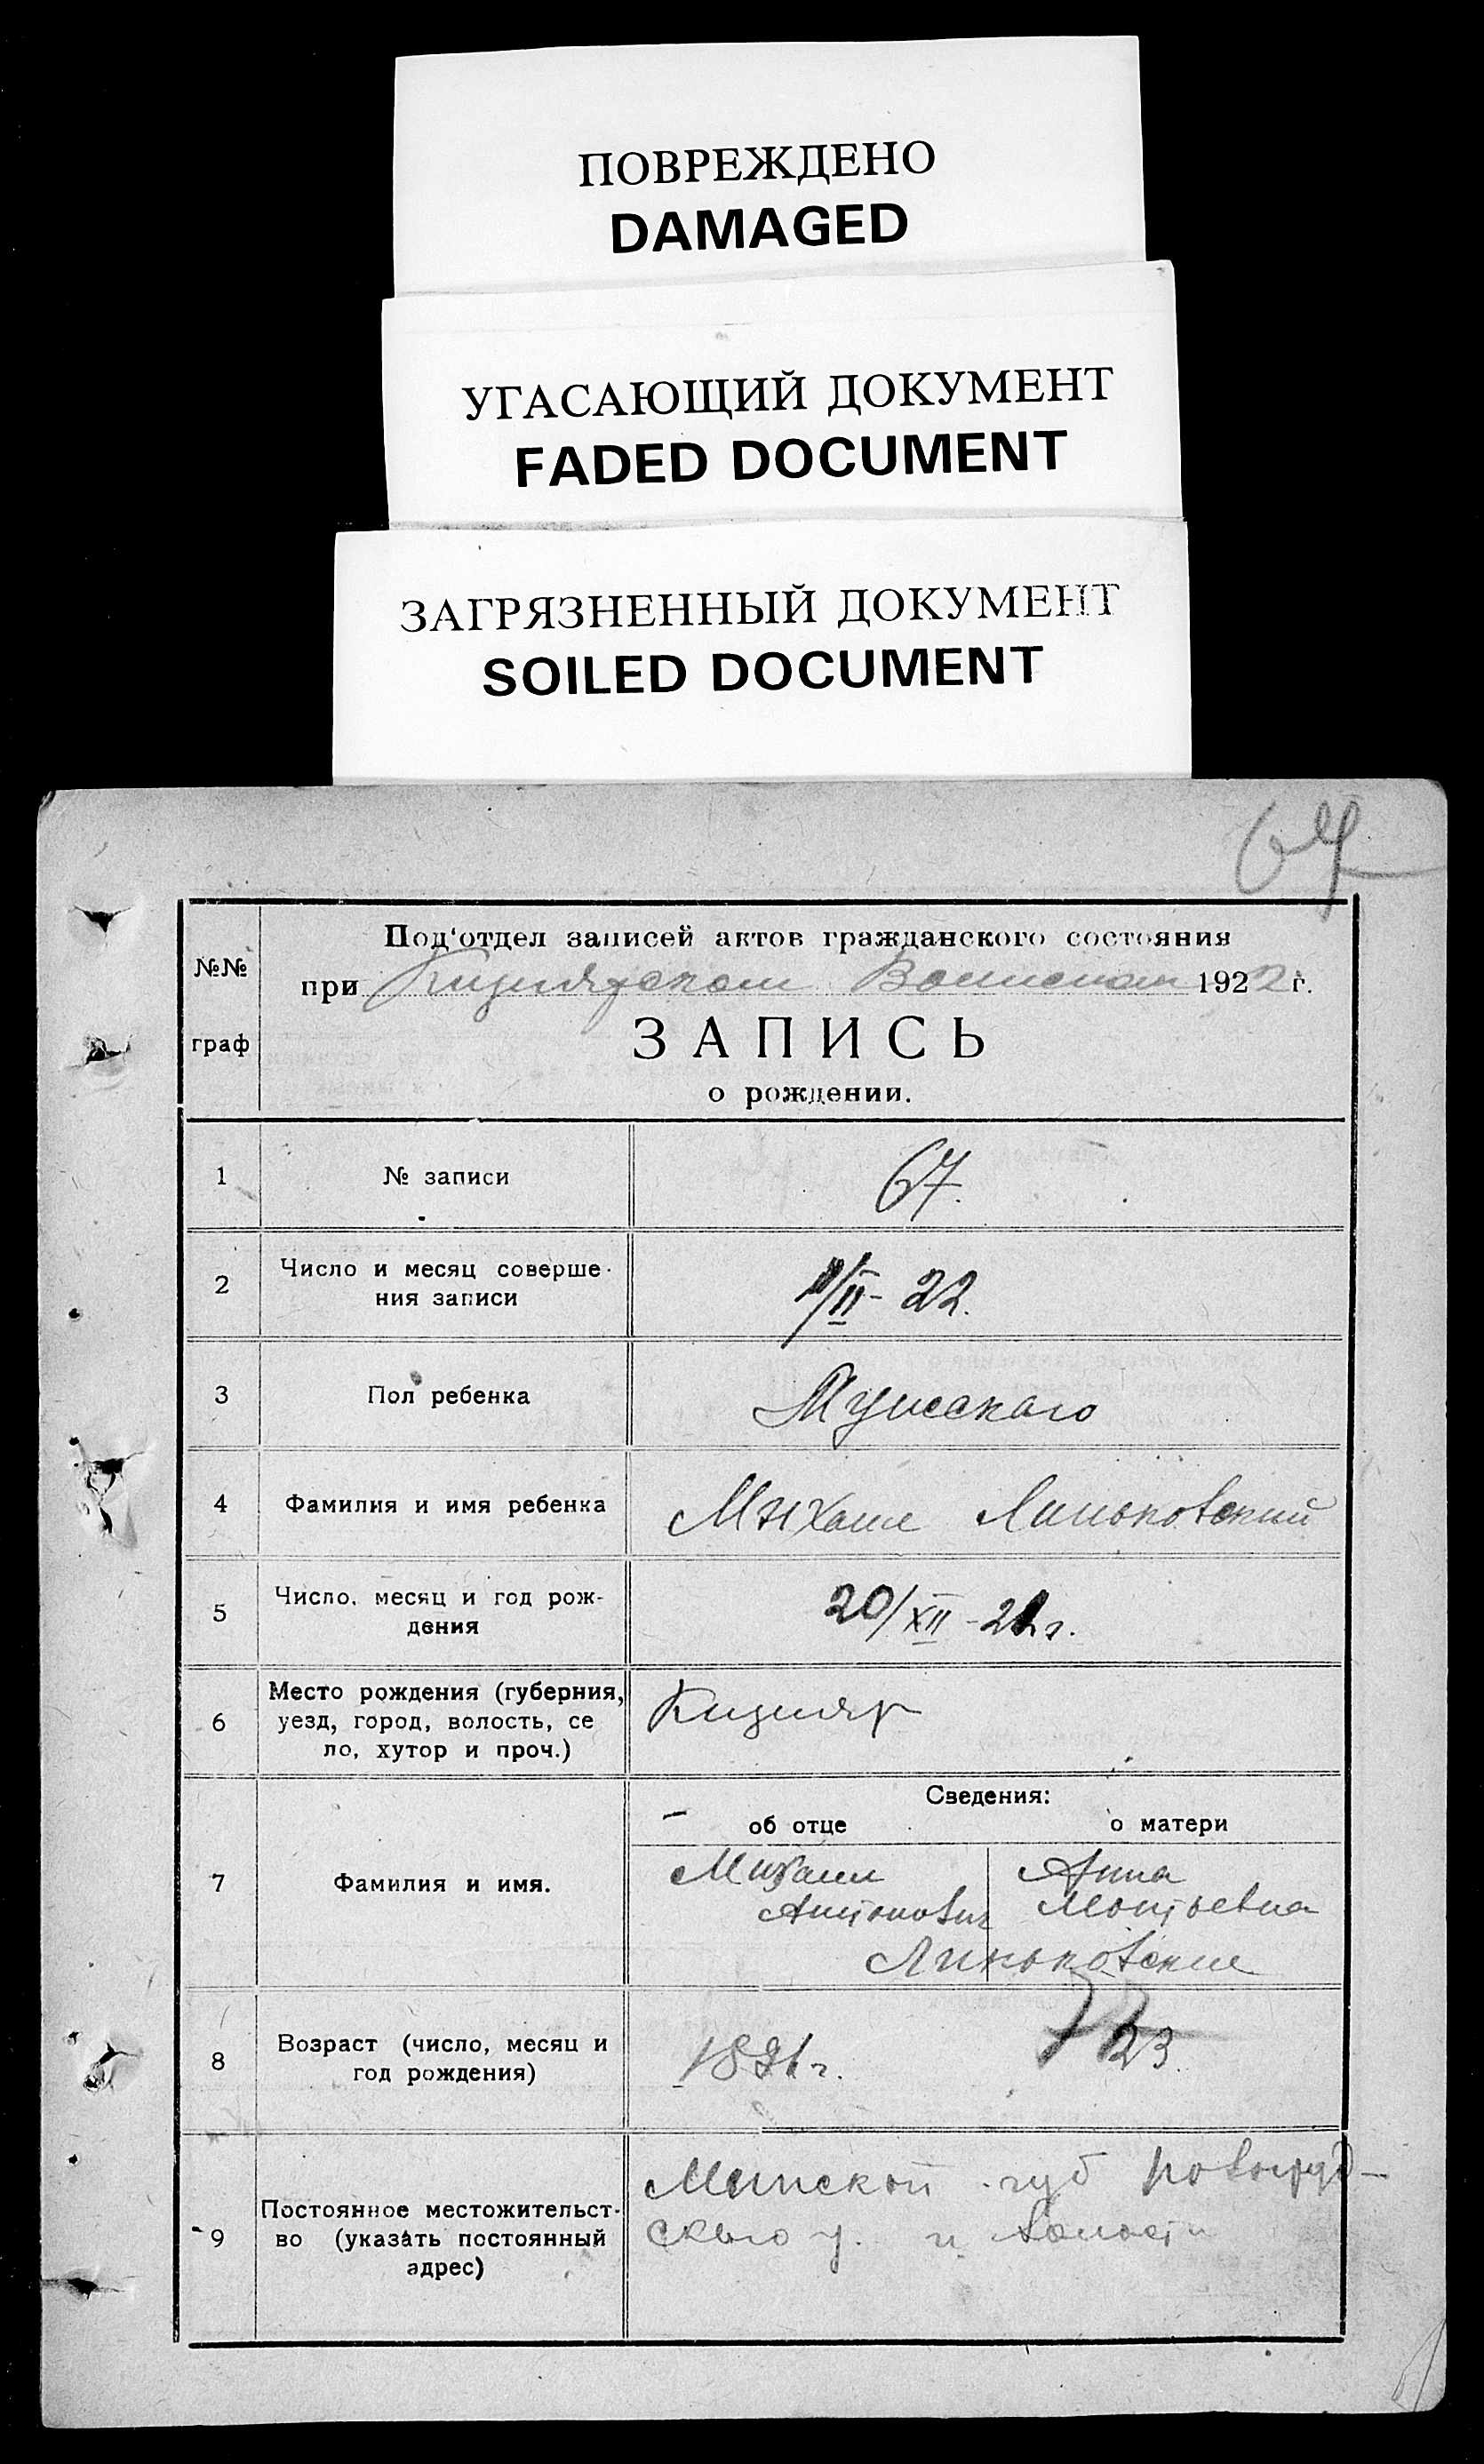 ПОВРЕЖДЕНО
DAMAGED
УГАСАЮЩИЙ ДОКУМЕНТ
FADED DOCUMENT
ЗАГРЯЗНЕННЫЙ ДОКУМЕНТ
SOILED DOCUMENT
67
Под'отдел записей актов гражданского состояния
№№ граф
при Кизиярском 1922 г.
ЗАПИСЬ
о рождении.
1 № записи 67.
2 Число и месяц соверше-
ния записи
/II - 22.
3 Пол ребенка Мужскаго
4 Фамилия и имя ребенка Михаил Линьковский
5 Число, месяц и год рож-
дения
20/XII - 21 г.
6 Место рождения (губерния,
уезд, город, волость, се
ло, хутор и проч.)
Кизияр
Сведения:
об отце о матери
7 Фамилия и имя.
Михаил Анна
Антонович Мойсьевна
Линьковские
8 Возраст (число, месяц и
год рождения)
18 1 г. 23
9 Постоянное местожительст-
во (указать постоянный
адрес)
Минской губ Новогруд-
скаго у. и волости